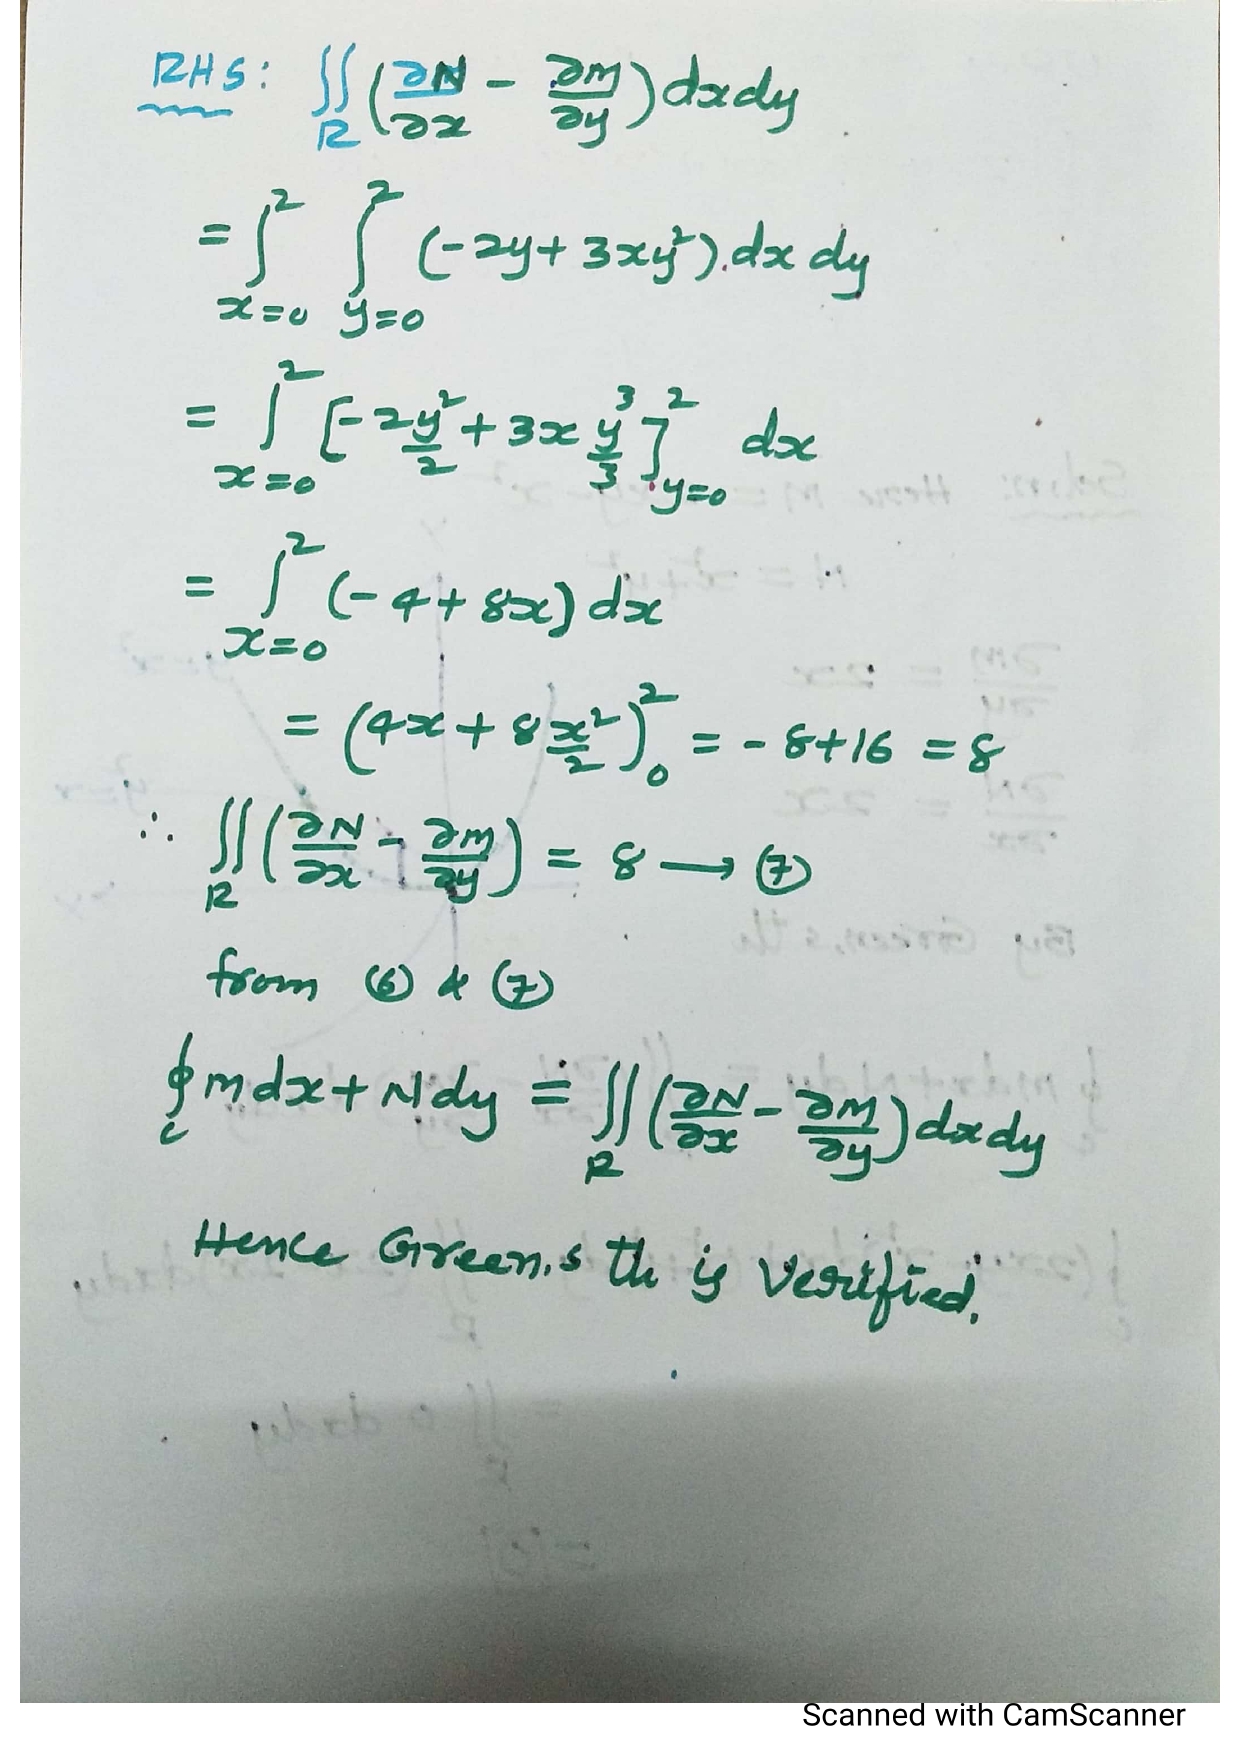 RHS: ∬_R (∂N/∂x - ∂M/∂y) dxdy
= ∫_{x=0}^{2} ∫_{y=0}^{2} (-2y + 3xy²).dx dy
= ∫_{x=0}^{2} [-2y²/2 + 3x y³/3]_{y=0}^{2} dx
= ∫_{x=0}^{2} (-4 + 8x) dx
= (4x + 8 x²/2)_0^2 = -8+16 = 8
∴ ∬_R (∂N/∂x - ∂M/∂y) = 8 → ⑦
from ⑥ & ⑦
∮_c Mdx + Ndy = ∬_R (∂N/∂x - ∂M/∂y) dxdy
Hence Green's th is verified.
Scanned with CamScanner